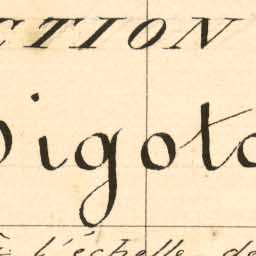 CTION
igot
à l'échelle de